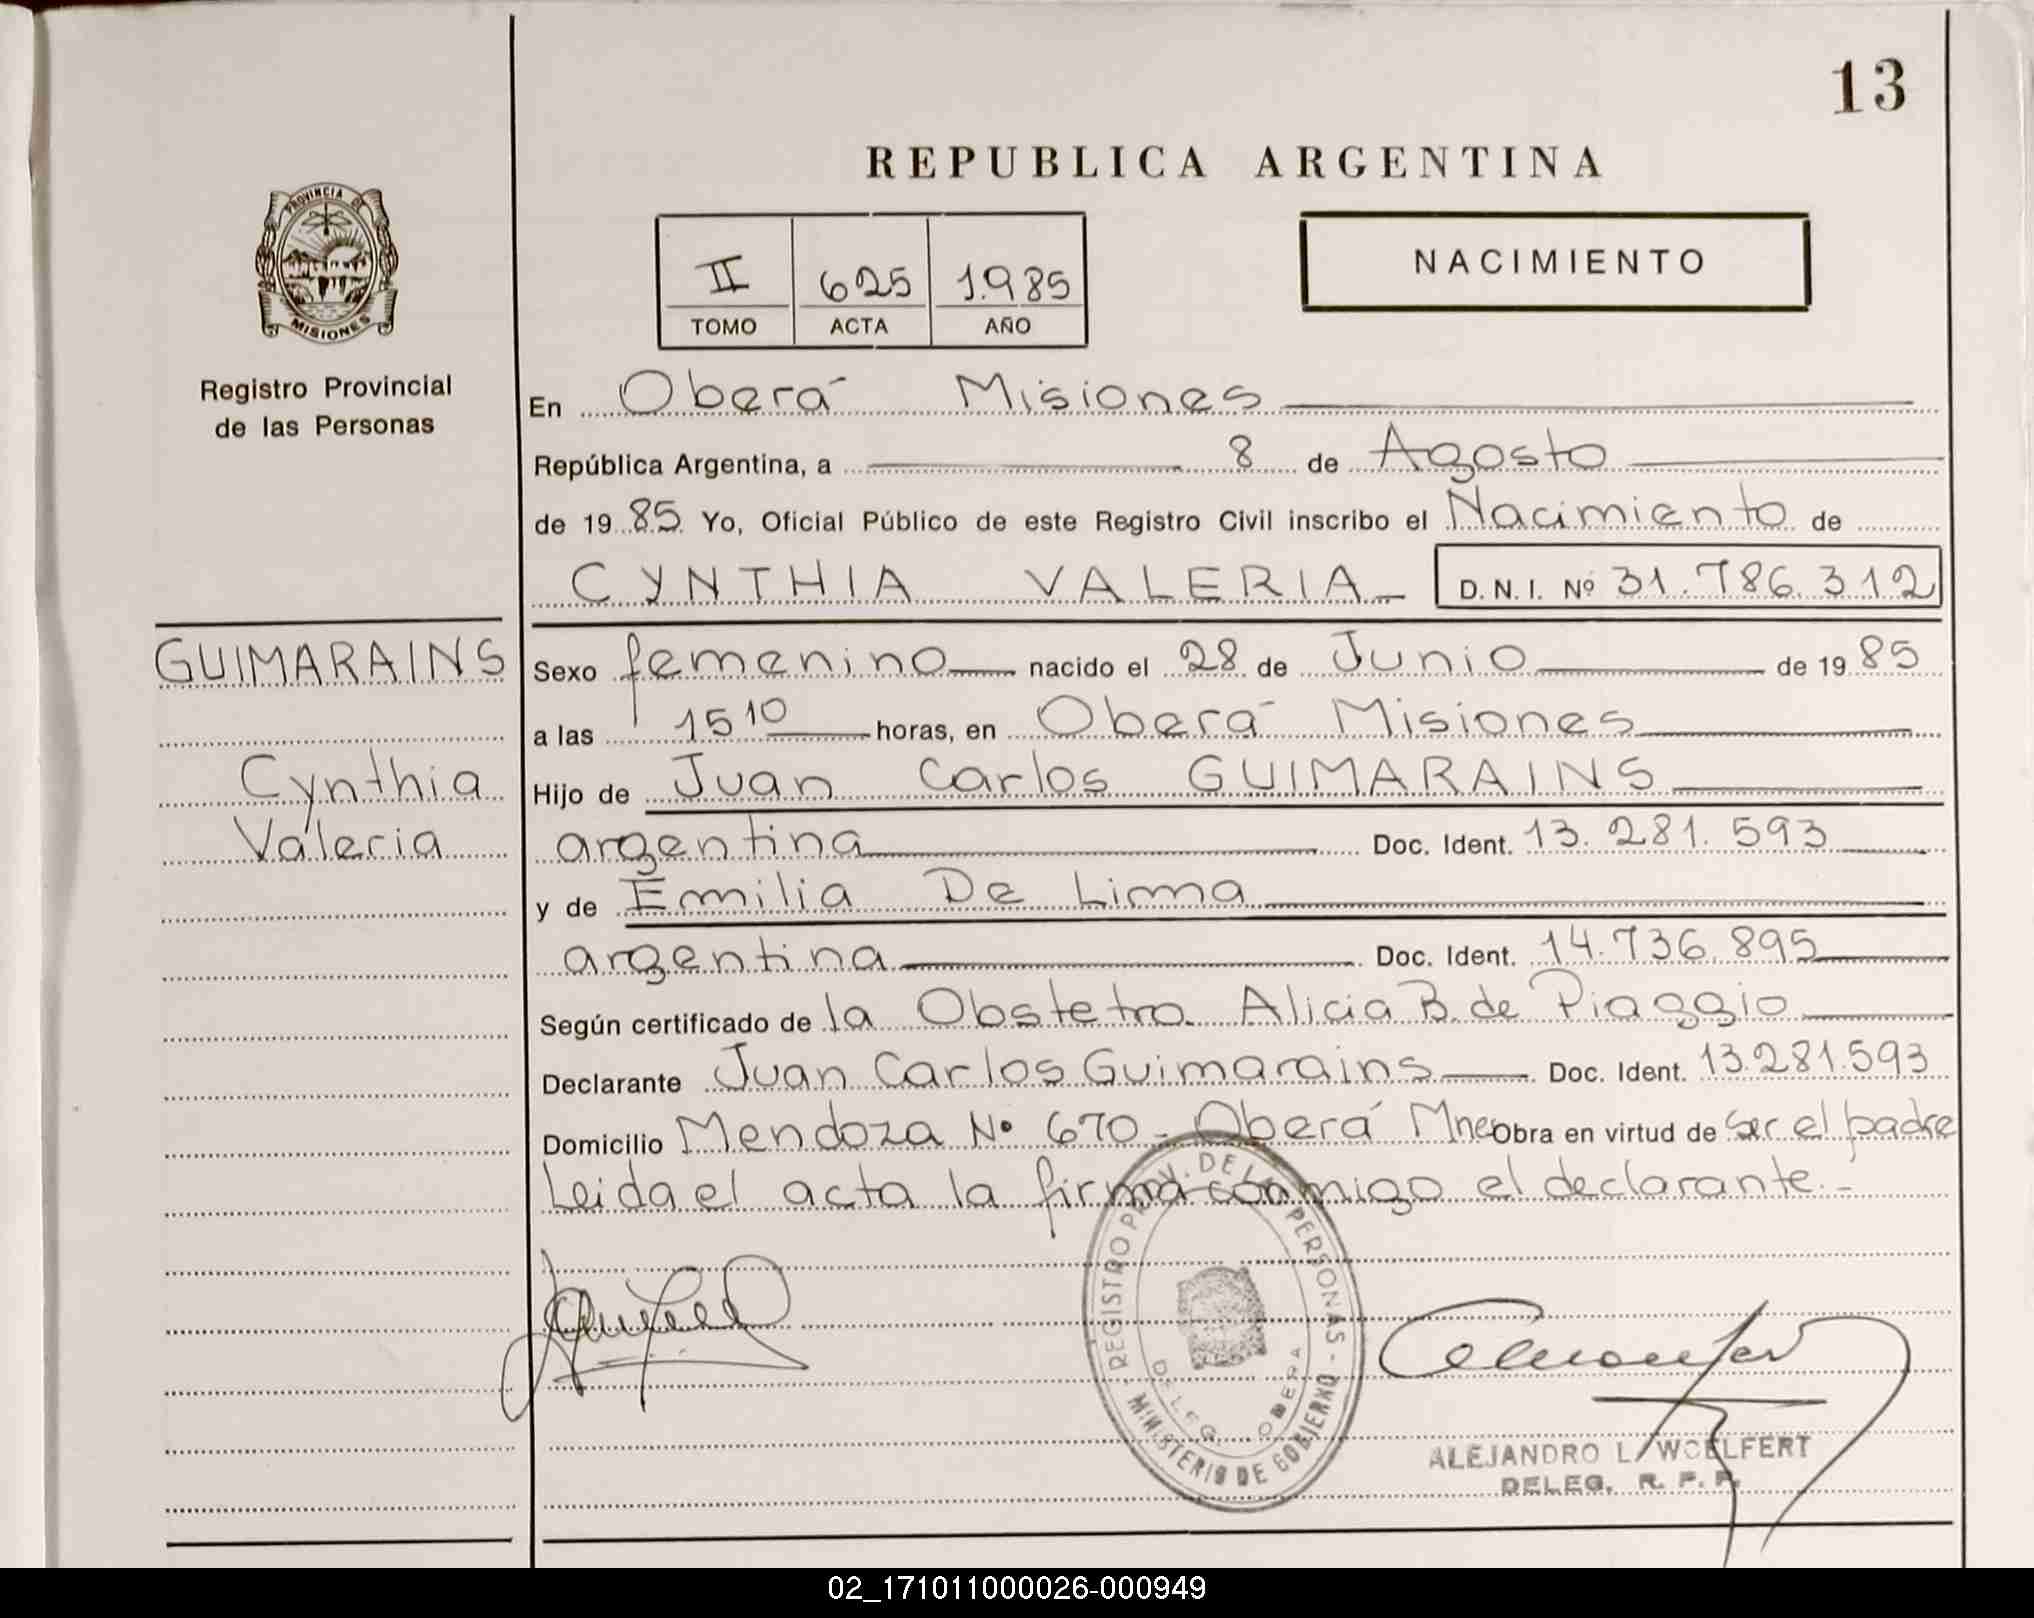 13
REPUBLICA ARGENTINA
PROVINCIA DE
MISIONES
Registro Provincial
de las Personas
II 625 1.985
TOMO ACTA AÑO
NACIMIENTO
En Oberá Misiones
República Argentina, a 8 de Agosto
de 1985 Yo, Oficial Público de este Registro Civil inscribo el Nacimiento de
CYNTHIA VALERIA D.N.I. Nº 31.786.312
GUIMARAINS
Cynthia
Valeria
Sexo femenino nacido el 28 de Junio de 1985
a las 15 10 horas, en Oberá Misiones
Hijo de Juan Carlos GUIMARAINS
argentina Doc. Ident. 13.281.593
y de Emilia De Lima
argentina Doc. Ident. 14.736.895
Según certificado de la Obstetra Alicia B. de Piaggio
Declarante Juan Carlos Guimarains Doc. Ident. 13.281.593
Domicilio Mendoza Nº 670 - Oberá Mnes Obra en virtud de ser el padre
Leida el acta la firma conmigo el declarante.-
REGISTRO PROV. DE LAS PERSONAS - MINISTERIO DE GOBIERNO -
DELEG. OBERA
ALEJANDRO L. WOELFERT
DELEG. R. P. P.
02_171011000026-000949